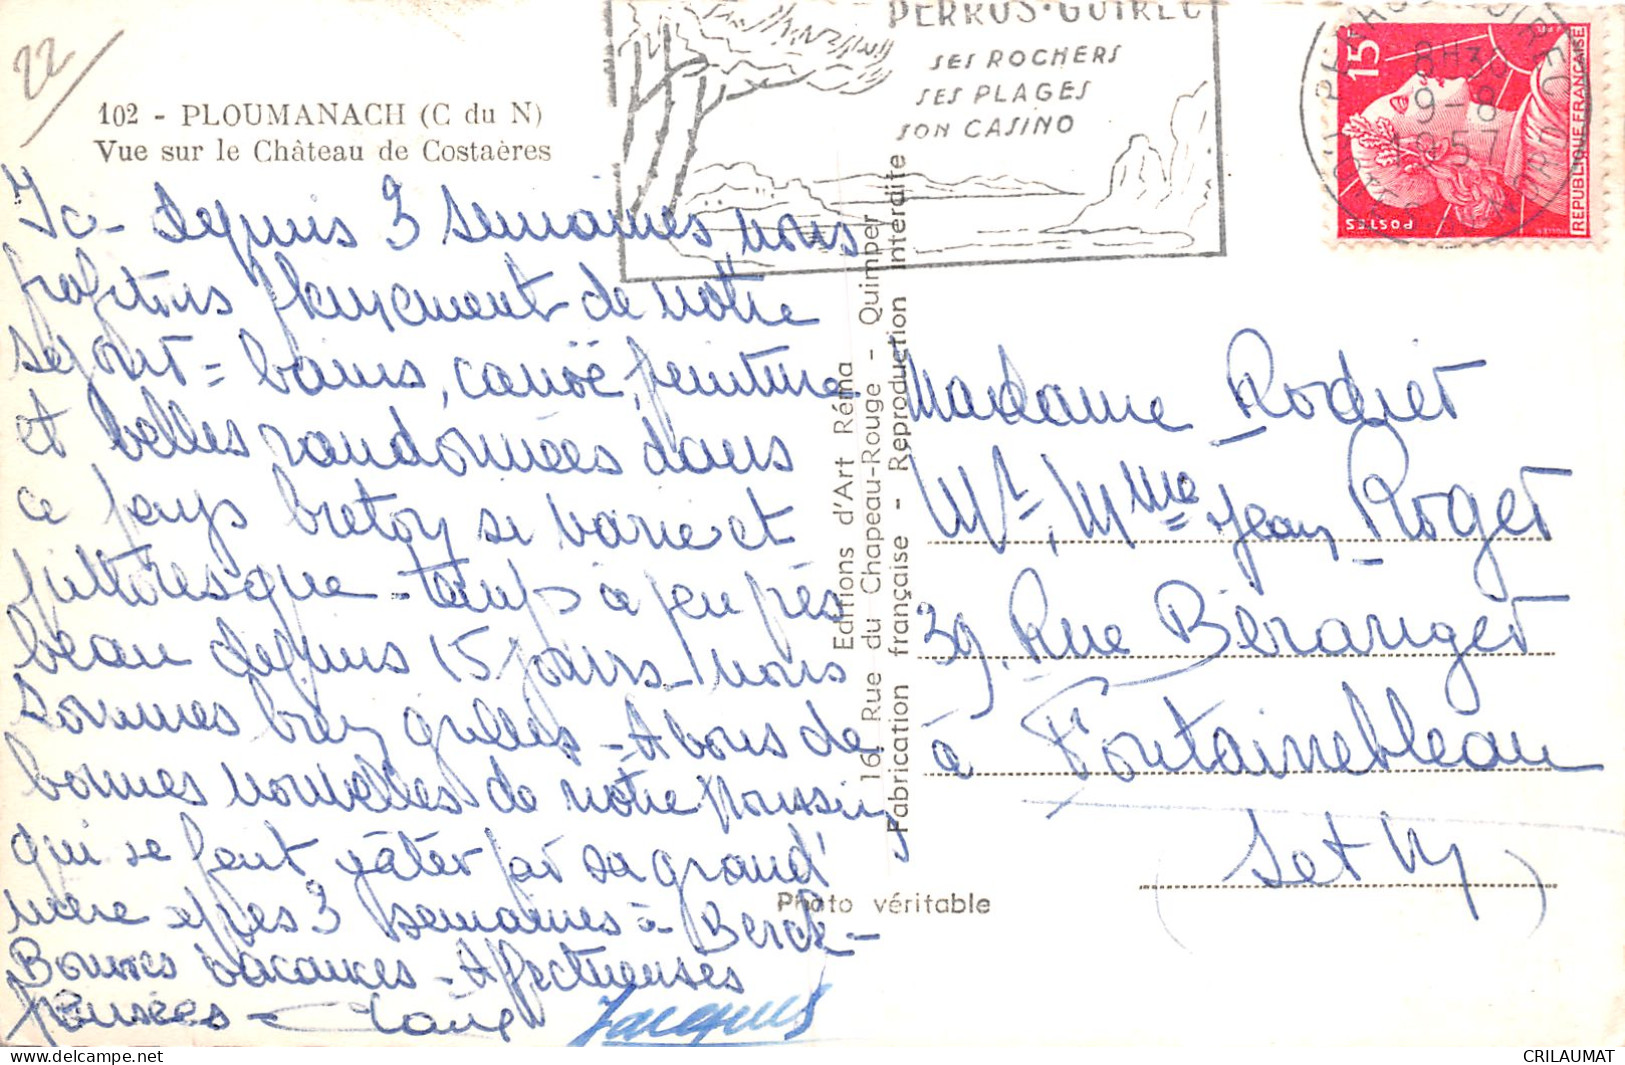 22
102 - PLOUMANACH (C du N)
Vue sur le Château de Costaères
PERROS-GUIREC
SES ROCHERS
SES PLAGES
SON CASINO
8H30
9-8
1957
15F
POSTES
REPUBLIQUE FRANÇAISE
Ici - depuis 3 semaines, nous
profitons pleinement de notre
séjour = bains, canoë, peinture
et belles randonnées dans
ce pays breton si varié et
pittoresque - temps à peu près
beau depuis 15 jours - nous
sommes bien grillés - Avons de
bonnes nouvelles de notre poussin
qui se fait gâter par sa grand'
mère après 3 semaines à Berck -
Bonnes vacances - Affectueuses
pensées - Claire Jacques
Editions d'Art Réma
16, Rue du Chapeau-Rouge - Quimper
Fabrication française - Reproduction interdite
Photo véritable
Madame Rodier
Mr, Mme Jean Roger
39. Rue Béranger
à Fontainebleau
(Set M)
CRILAUMAT